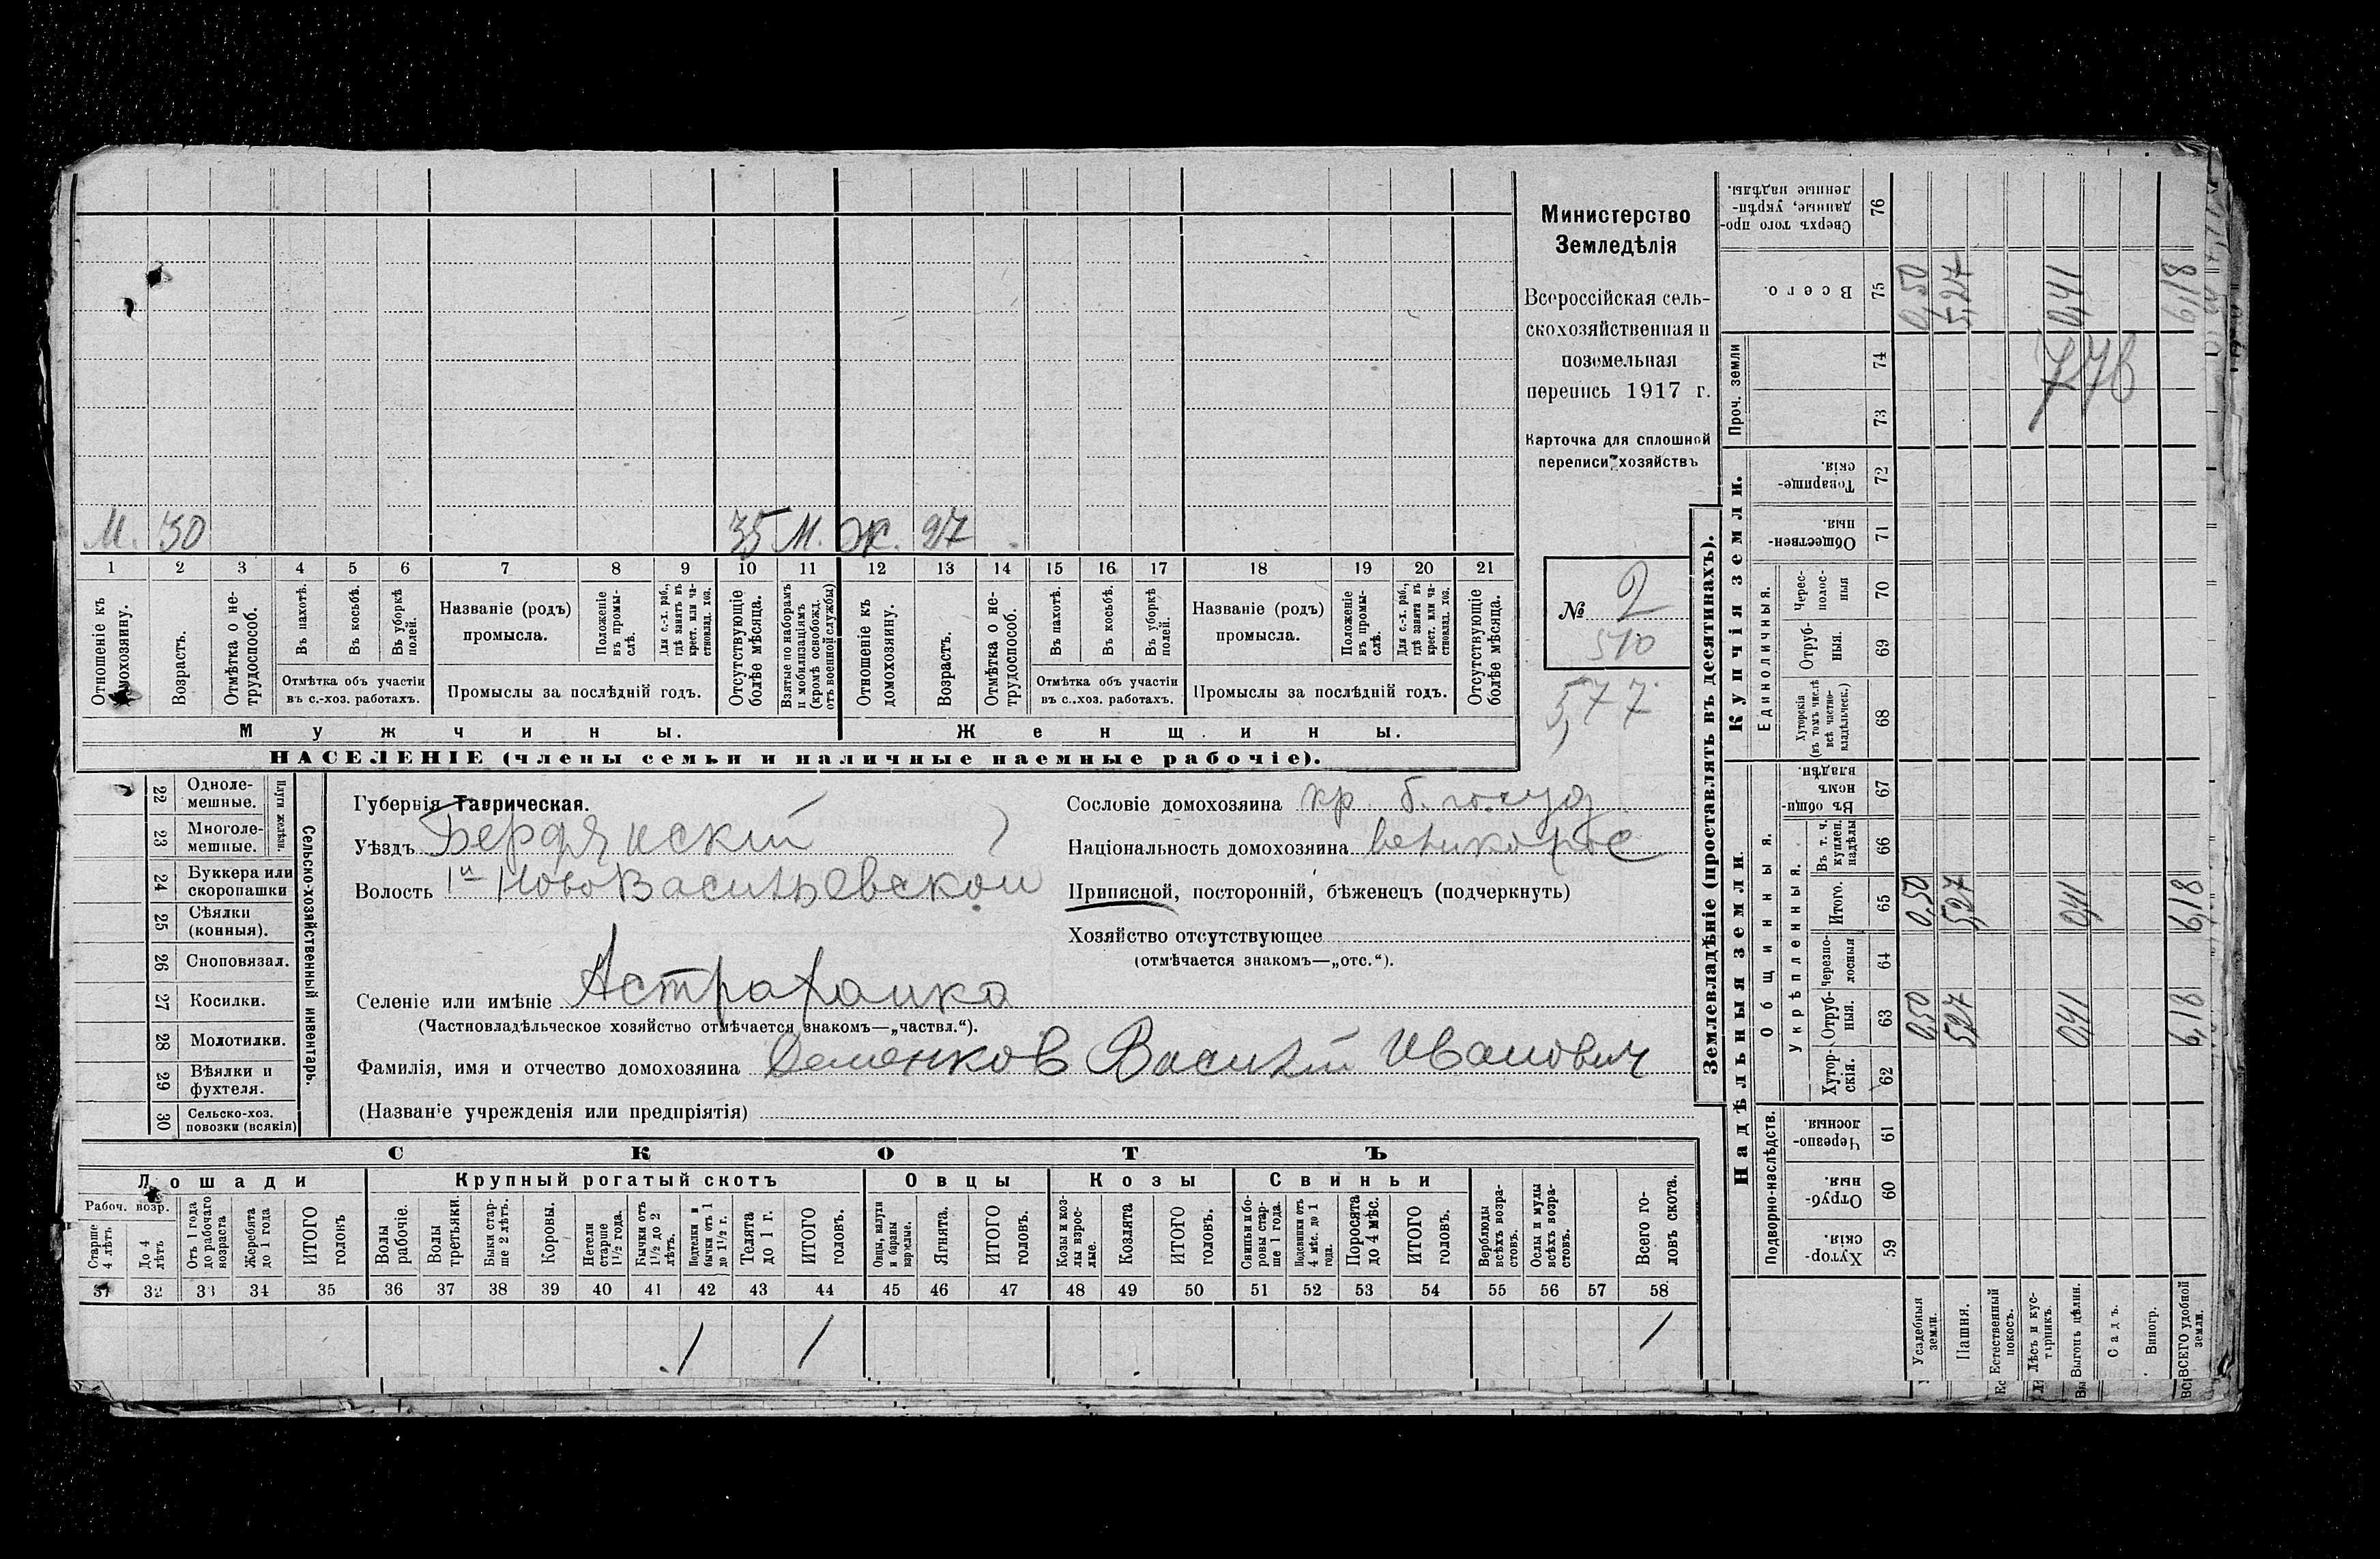 М. 30 35 М. Ж. 27
1 2 3 4 5 6 7 8 9 10 11 12 13 14 15 16 17 18 19 20 21
Отношеніе къ домохозяину.
Возрастъ.
Отмѣтка о не-
трудоспособ.
Въ пахотѣ.
Въ косьбѣ.
Въ уборкѣ
полей.
Отмѣтка объ участіи
въ с.-хоз. работахъ.
Названіе (родъ)
промысла.
Положеніе
въ промы-
слѣ.
Для с.-х. раб.,
гдѣ занятъ въ
крест. или ча-
стновлад. хоз.
Промыслы за послѣдній годъ.
Отсутствующіе
болѣе мѣсяца.
Взятые по наборамъ
и мобилизаціямъ
(кромѣ освобожд.
отъ военной службы)
Отношеніе къ
домохозяину.
Возрастъ.
Отмѣтка о не-
трудоспособ.
Въ пахотѣ.
Въ косьбѣ.
Въ уборкѣ
полей.
Отмѣтка объ участіи
въ с.-хоз. работахъ.
Названіе (родъ)
промысла.
Положеніе
въ промы-
слѣ.
Для с.-х. раб.,
гдѣ занята въ
крест. или ча-
стновлад. хоз.
Промыслы за послѣдній годъ.
Отсутствующіе
болѣе мѣсяца.
Мужчины.
Женщины.
НАСЕЛЕНІЕ (члены семьи и наличные наемные рабочіе).
Министерство
Земледѣлія
Всероссійская сель-
скохозяйственная и
поземельная
перепись 1917 г.
Карточка для сплошной
переписи хозяйствъ
№ 2
510
5,77
22 Одноле-
мешные.
23 Многоле-
мешные.
Плуги желѣзн.
24 Буккера или
скоропашки
25 Сѣялки
(конныя).
26 Сноповязал.
27 Косилки.
28 Молотилки.
29 Вѣялки и
фухтеля.
30 Сельско-хоз.
повозки (всякія)
Сельско-хозяйственный инвентарь.
Губернія Таврическая.
Уѣздъ Бердянский
Волость 1й НовоВасильевской
Селеніе или имѣніе Астраханка
(Частновладѣльческое хозяйство отмѣчается знакомъ—„частвл.“).
Фамилія, имя и отчество домохозяина Семенков Василий Иванович
(Названіе учрежденія или предпріятія)
Сословіе домохозяина кр. б. госуд
Національность домохозяина великорос
Приписной, посторонній, бѣженецъ (подчеркнуть)
Хозяйство отсутствующее
(отмѣчается знакомъ—„отс.“).
СКОТЪ
Лошади
Крупный рогатый скотъ
Овцы
Козы
Свиньи
Рабоч. возр.
Старше
4 лѣтъ
До 4
лѣтъ
Отъ 1 года
до рабочаго
возраста
Жеребята
до 1 года
ИТОГО
головъ
Волы
рабочіе.
Волы
третьяки.
Быки стар-
ше 2 лѣтъ.
Коровы.
Нетели
старше
1½ года.
Бычки отъ
1½ до 2
лѣтъ.
Подтелки и
бычки отъ 1
до 1½ г.
Телята
до 1 г.
ИТОГО
головъ.
Овцы, валухи
и бараны
взрослые.
Ягнята.
ИТОГО
головъ.
Козы и коз-
лы взрос-
лые.
Козлята
ИТОГО
головъ.
Свиньи и бо-
ровы стар-
ше 1 года.
Подсвинки отъ
4 мѣс. до 1
года.
Поросята
до 4 мѣс.
ИТОГО
головъ.
Верблюды
всѣхъ возра-
стовъ.
Ослы и мулы
всѣхъ возра-
стовъ.
Всего го-
ловъ скота.
31 32 33 34 35 36 37 38 39 40 41 42 43 44 45 46 47 48 49 50 51 52 53 54 55 56 57 58
1 1 1
Землевладѣніе (проставлять въ десятинахъ).
Надѣльныя земли
Купчія земли.
Проч. земли
Подворно-наслѣдств.
Общинныя.
Укрѣпленныя.
Единоличныя.
Хутор-
скія. 59
Отруб-
ныя. 60
Черезпо-
лосныя. 61
Хутор-
скія. 62
Отруб-
ныя. 63
Черезпо-
лосныя 64
Итого. 65
Въ т. ч.
куплен.
надѣлы 66
Въ общин-
номъ
владѣн. 67
Хуторскія
(въ томъ числѣ
всѣ частно-
владѣльческ.) 68
Отруб-
ныя. 69
Черес-
полос-
ныя 70
Обществен-
ныя. 71
Товарище-
скія. 72
73
74
Всего. 75
Сверхъ того про-
данные, укрѣп-
ленные надѣлы. 76
Усадебныя
земли. 0,50 0,50 0,50
Пашня. 5,27 5,27 5,27
Естественный
покосъ.
Лѣсъ и кус-
тарникъ.
Выгонъ цѣлин. 0,41 0,41 0,41
Садъ.
Виногр.
ВСЕГО удобной
земли. 6,18 6,18 6,18